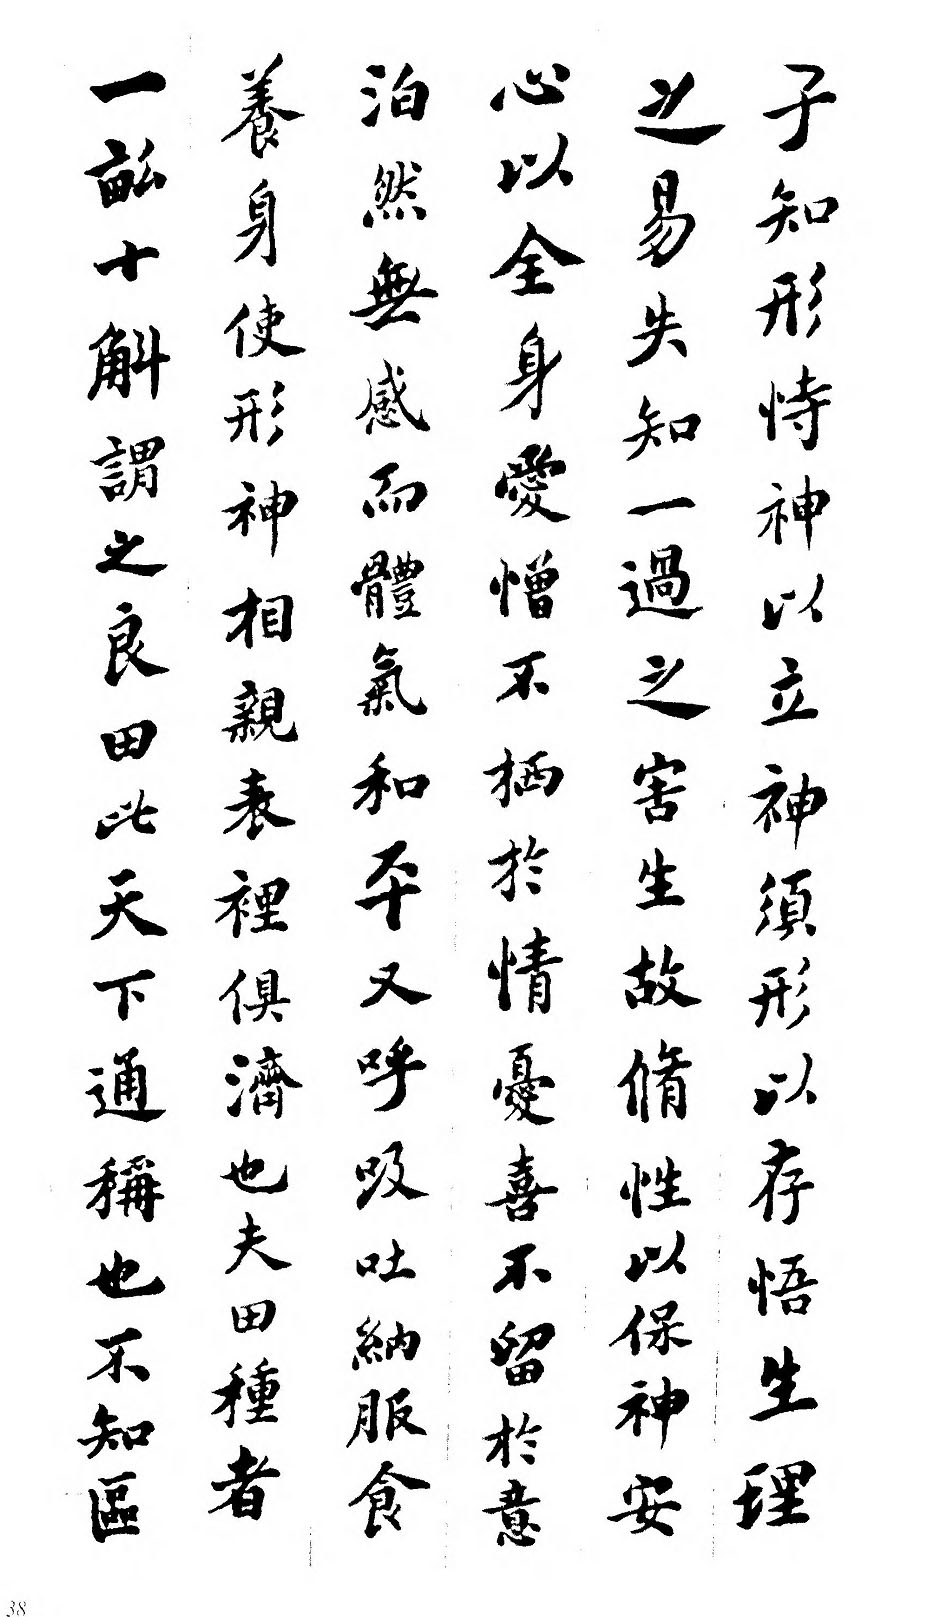 子知形恃神以立神須形以存悟生理
之易失知一過之害生故脩性以保神安
心以全身愛憎不栖於情憂喜不留於意
泊然無感而體氣和平又呼吸吐納服食
養身使形神相親表裡俱濟也夫田種者
一畝十斛謂之良田此天下通稱也不知區
38